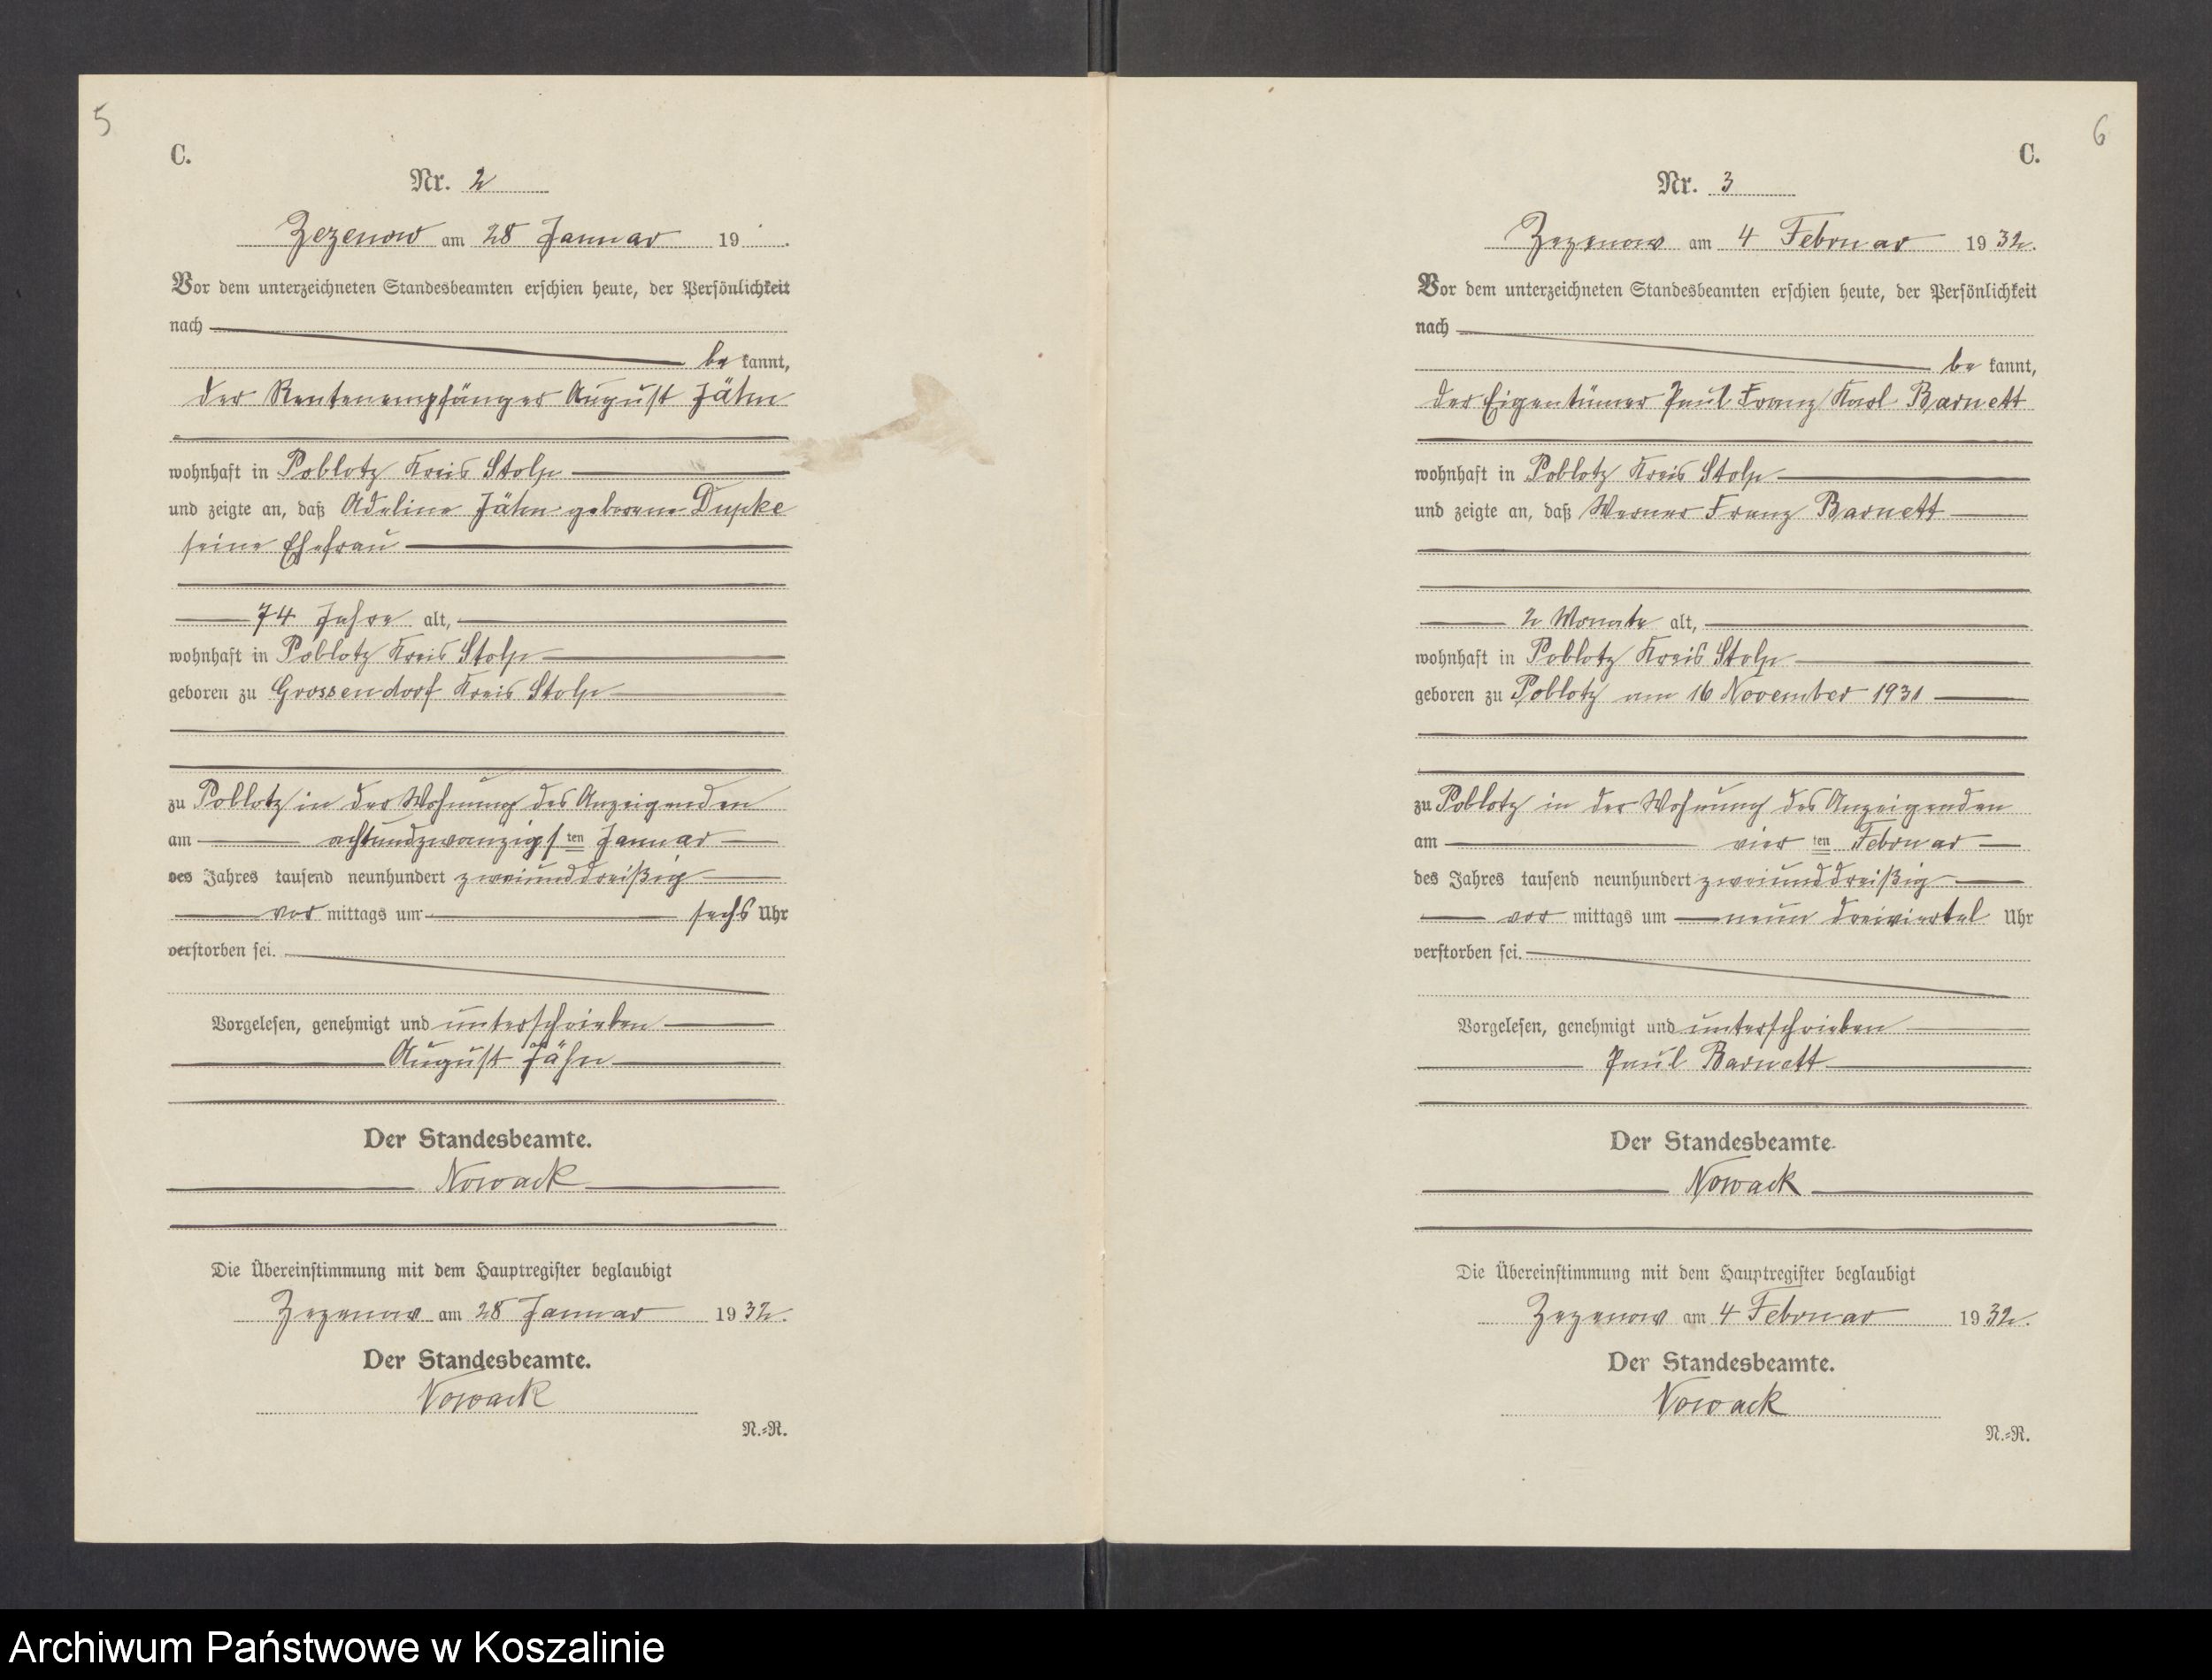 5
C.
Nr. 2
Zezenow am 28 Januar 19 .
Vor dem unterzeichneten Standesbeamten erschien heute, der Persönlichkeit
nach
be kannt,
der Rentenempfänger August Jähn
wohnhaft in Poblotz Kreis Stolp
und zeigte an, daß Adeline Jähn geborene Dupke
seine Ehefrau
74 Jahre alt,
wohnhaft in Poblotz Kreis Stolp
geboren zu Grossendorf Kreis Stolp
zu Poblotz in der Wohnung des Anzeigenden
am achtundzwanzigs ten Januar
des Jahres tausend neunhundert zweiunddreißig
vor mittags um sechs Uhr
verstorben sei.
Vorgelesen, genehmigt und unterschrieben
August Jähn
Der Standesbeamte.
Nowack
Die Übereinstimmung mit dem Hauptregister beglaubigt
Zezenow am 28 Januar 1932.
Der Standesbeamte.
Nowack
N.=R.
6
C.
Nr. 3
Zezenow am 4 Februar 1932.
Vor dem unterzeichneten Standesbeamten erschien heute, der Persönlichkeit
nach
be kannt,
der Eigentümer Paul Franz Karl Barnett
wohnhaft in Poblotz Kreis Stolp
und zeigte an, daß Werner Franz Barnett
2 Monate alt,
wohnhaft in Poblotz Kreis Stolp
geboren zu Poblotz am 16 November 1931
zu Poblotz in der Wohnung des Anzeigenden
am vier ten Februar
des Jahres tausend neunhundert zweiunddreißig
vor mittags um neun dreiviertel Uhr
verstorben sei.
Vorgelesen, genehmigt und unterschrieben
Paul Barnett
Der Standesbeamte.
Nowack
Die Übereinstimmung mit dem Hauptregister beglaubigt
Zezenow am 4 Februar 1932.
Der Standesbeamte.
Nowack
N.=R.
Archiwum Państwowe w Koszalinie